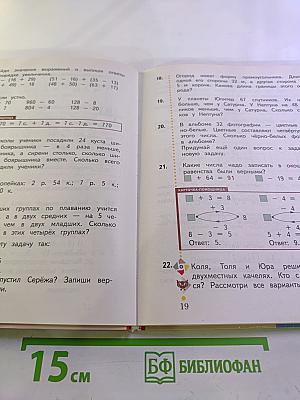 йди значения выражений и выпиши ответы
порядке увеличения.
− (16 + 29) (51 − 16) + (35 − 13)
+ (49 − 16) (48 + 50) − (63 + 35)
ши устно.
70 960 − 60 128 − 8
804 − 4 128 − 20
70 = 1 с. + 7 д. = 1 с. 7 д. = 170
коле ученики посадили 24 куста ши-
боярышника — в 4 раза меньше,
ника, а сирени столько, сколько ши-
и боярышника вместе. Сколько всего
садили ученики?
опейках: 2 р. 54 к.; 1 р. 5 к.;
к.
ших группах по плаванию учится
а в двух средних — на 5 че-
чем в младших. Сколько
в этих четырёх группах?
ту задачу так:
5
пустил Серёжа? Запиши вер-
и.
18. Огород имеет форму прямоугольника. Дли
одной его стороны 32 м, а другая сторона
5 м короче. Какова длина границы этого о
рода?
19. У планеты Юпитер 67 спутников. Их н
больше, чем у Сатурна. У Нептуна на 48
ников меньше, чем у Сатурна. Сколько с
ков у Нептуна?
20. В альбоме 32 фотографии — цветные
но-белые. Цветные составляют четвёрт
этого числа. Сколько чёрно-белых фот
в альбоме?
Придумай ещё один вопрос к задач
новую задачу.
21. Какие числа надо записать в окош
равенства были верными?
+ 64 = 91 − 19 = 4
КАРТОЧКА-ПОМОЩНИЦА
+ 3 = 8 − 4 =
− 3 + 4
8 − 3 = 5 5 + 4 =
Ответ: 5. Ответ: 9.
22. Коля, Толя и Юра реши
двухместных качелях. Кто с
ся? Рассмотри все варианты
19
15 СМ БФ БИБЛИОФАН